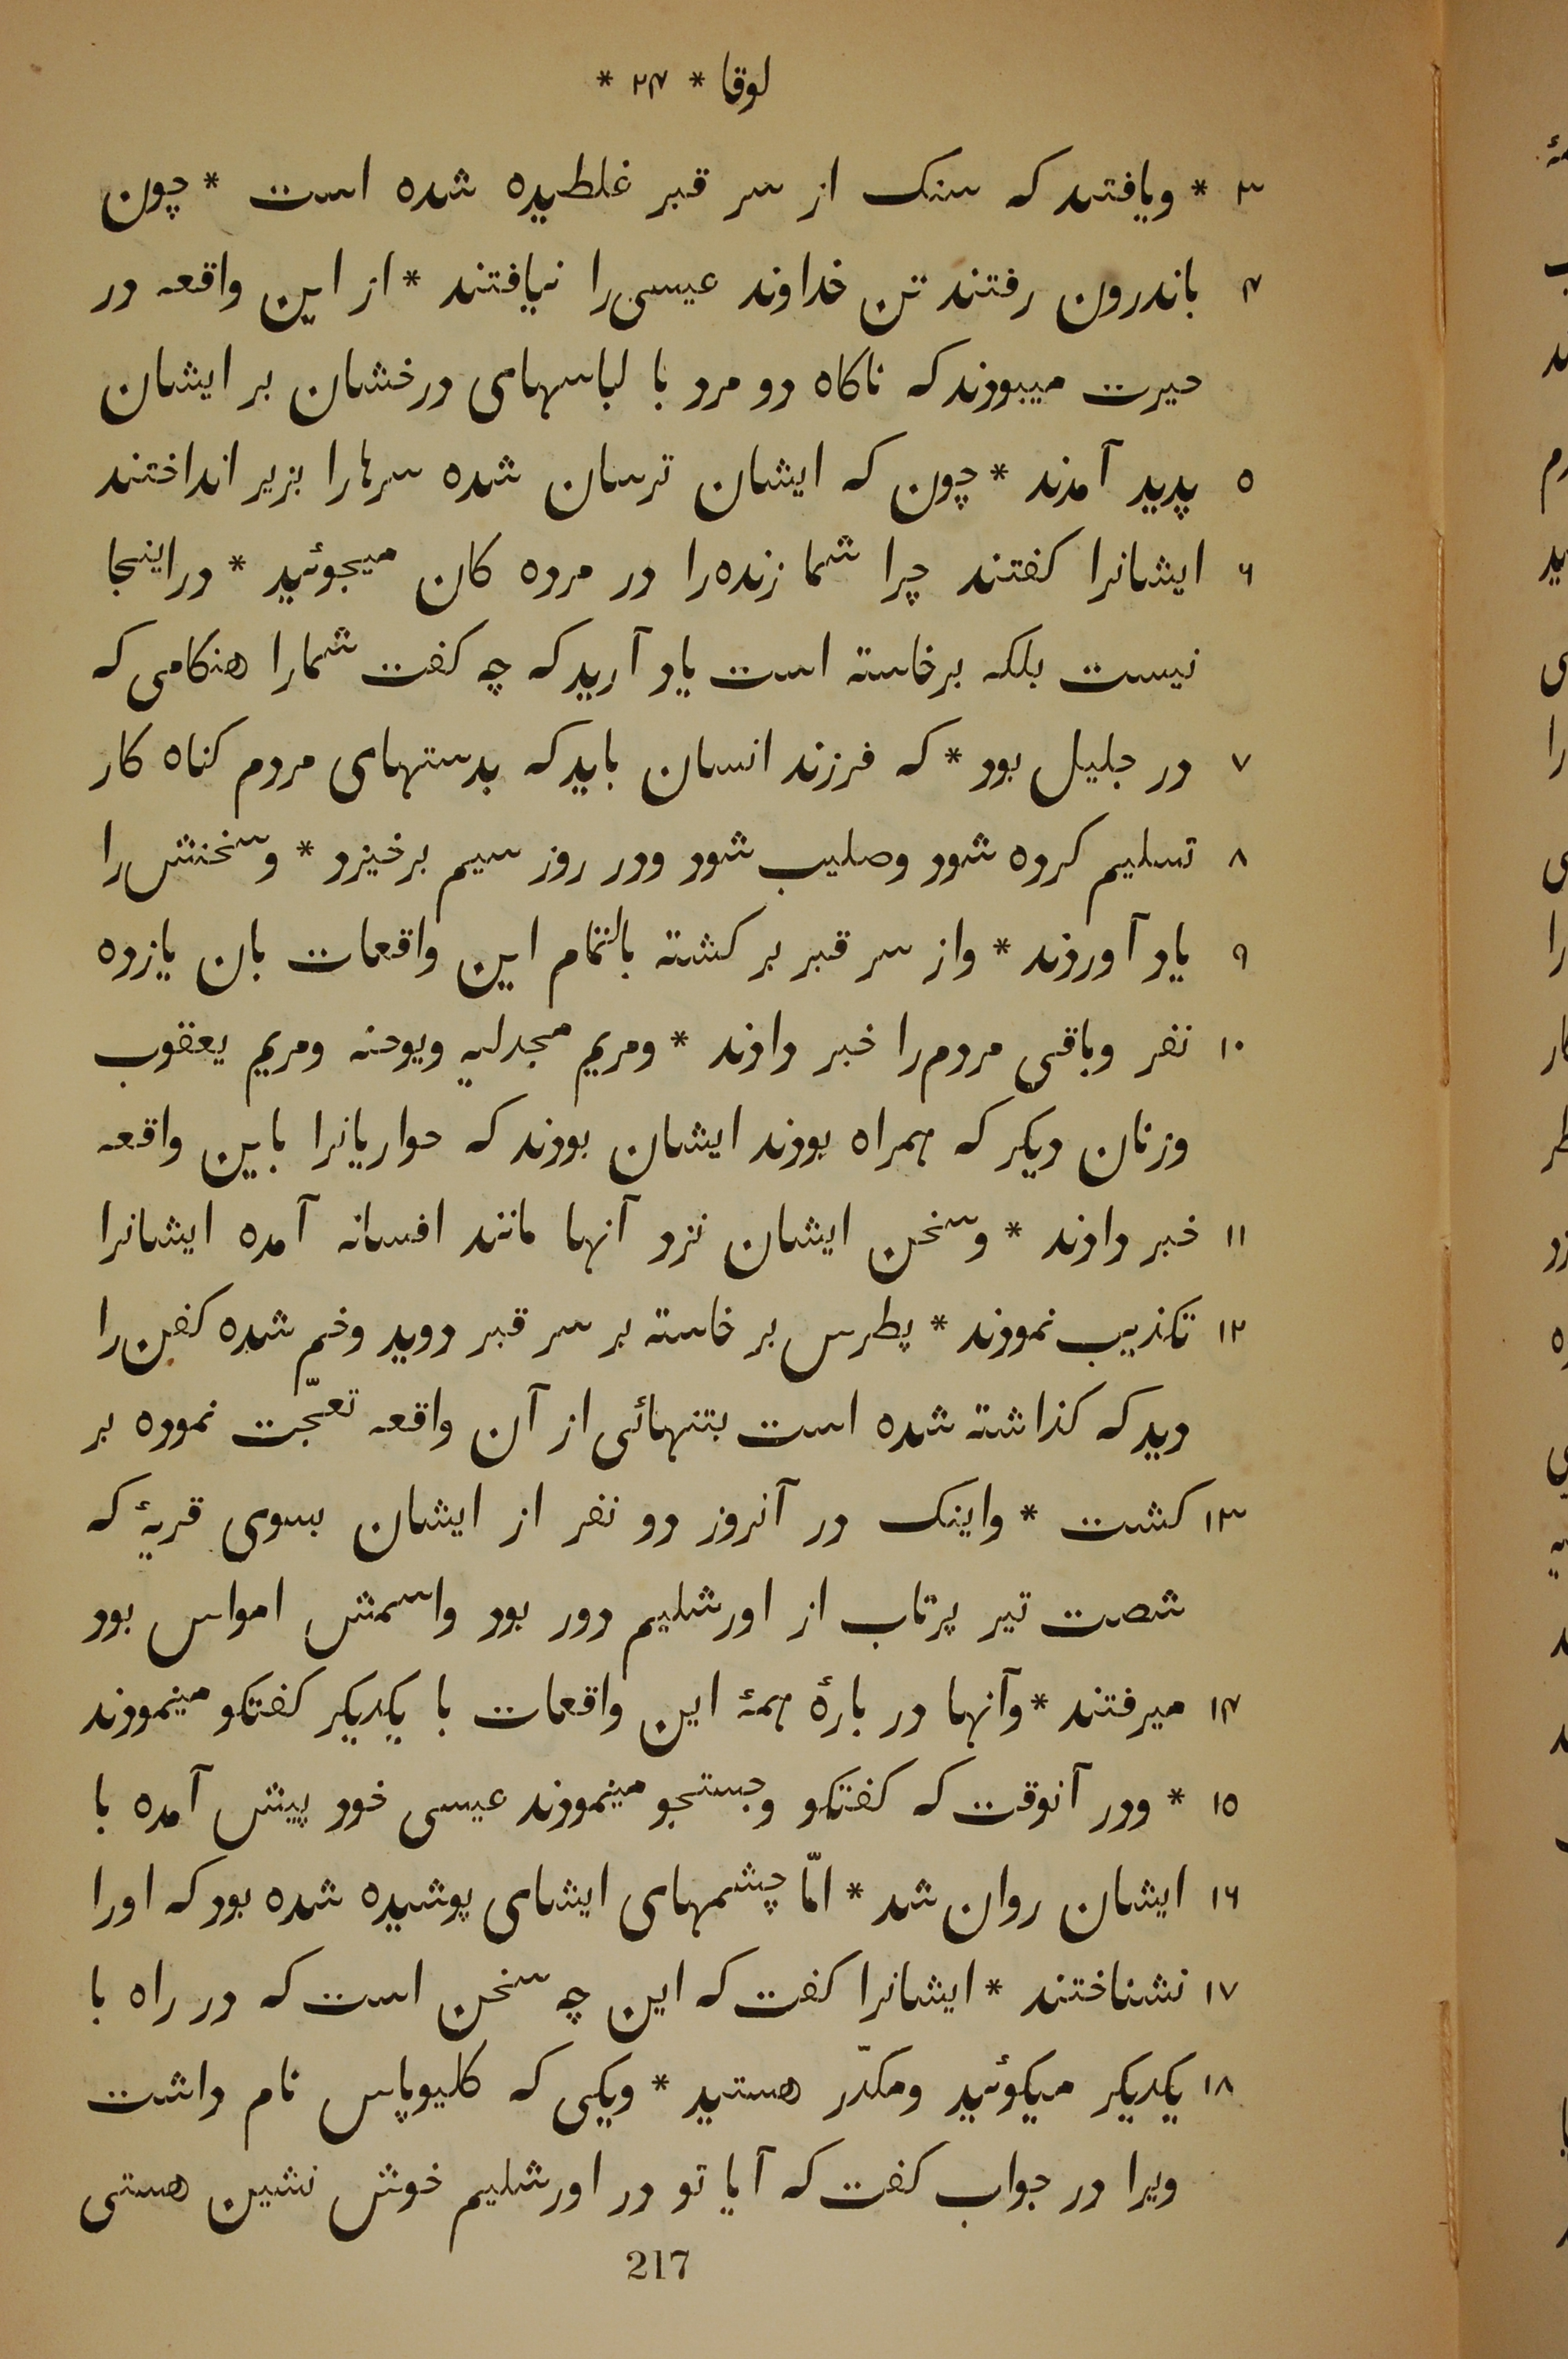 لوقا * ٢۴ *
٣ * ویافتند که سنک از سر قبر غلطیده شده است * چون
۴ باندرون رفتند تن خداوند عیسی را نیافتند * از این واقعه در
حیرت میبودند که ناکاه دو مرد با لباسهای درخشان بر ایشان
٥ پدید آمدند * چون که ایشان ترسان شده سرها را بزیر انداختند
٦ ایشانرا کفتند چرا شما زنده را در مرده کان میجوئید * در اینجا
نیست بلکه برخاسته است یاد آرید که چه کفت شمارا هنکامی که
٧ در جلیل بود * که فرزند انسان باید که بدستهای مردم کناه کار
٨ تسلیم کرده شود وصلیب شود ودر روز سیم برخیزد * وسخنش را
٩ یاد آوردند * واز سر قبر بر کشته بالتمام این واقعات بان یازده
١٠ نفر وباقی مردم را خبر دادند * ومریم مجدلیه ویوحنه ومریم یعقوب
وزنان دیکر که همراه بودند ایشان بودند که حواریانرا باین واقعه
١١ خبر دادند * وسخن ایشان نزد آنها مانند افسانه آمده ایشانرا
١٢ تکذیب نمودند * پطرس بر خاسته بر سر قبر دوید وخم شده کفن را
دید که کذاشته شده است بتنهائی از آن واقعه تعجّت نموده بر
١٣ کشت * واینک در آنروز دو نفر از ایشان بسوی قریهٔ که
شصت تیر پرتاب از اورشلیم دور بود واسمش امواس بود
١۴ میرفتند * وآنها در بارهٔ همهٔ این واقعات با یکدیکر کفتکو مینمودند
١٥ * ودر آنوقت که کفتکو وجستجو مینمودند عیسی خود پیش آمده با
١٦ ایشان روان شد * امّا چشمهای ایشای پوشیده شده بود که اورا
١٧ نشناختند * ایشانرا کفت که این چه سخن است که در راه با
١٨ یکدیکر میکوئید ومکدّر هستید * ویکی که کلیوپاس نام داشت
ویرا در جواب کفت که آیا تو در اورشلیم خوش نشین هستی
217